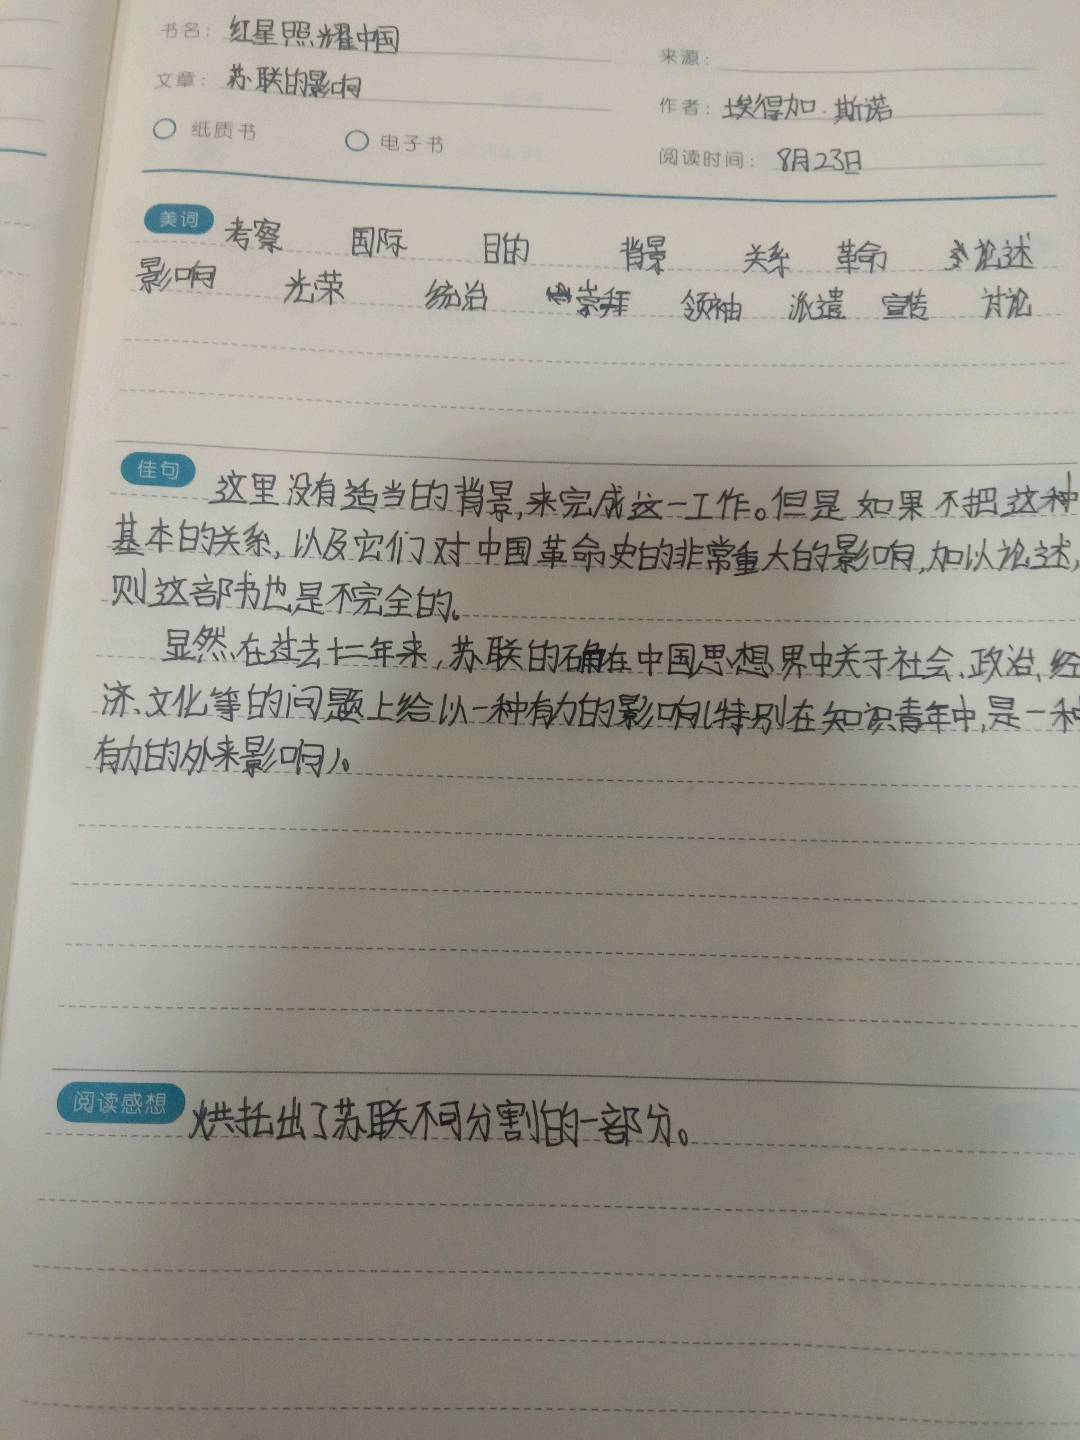 书名：红星照耀中国
来源：
文章：苏联的影响
作者：埃得加·斯诺
纸质书 电子书
阅读时间：8月23日
美词 考察 国际 目的 背景 关系 革命 论述
影响 光荣 统治 崇拜 领袖 派遣 宣传 讨论
佳句 这里没有适当的背景,来完成这一工作。但是如果不把这种
基本的关系,以及它们对中国革命史的非常重大的影响,加以论述,
则这部书也是不完全的。
显然,在过去十二年来,苏联的确在中国思想界中关于社会、政治、经
济、文化等的问题上给以一种有力的影响(特别在知识青年中,是一种
有力的外来影响)。
阅读感想 烘托出了苏联不可分割的一部分。